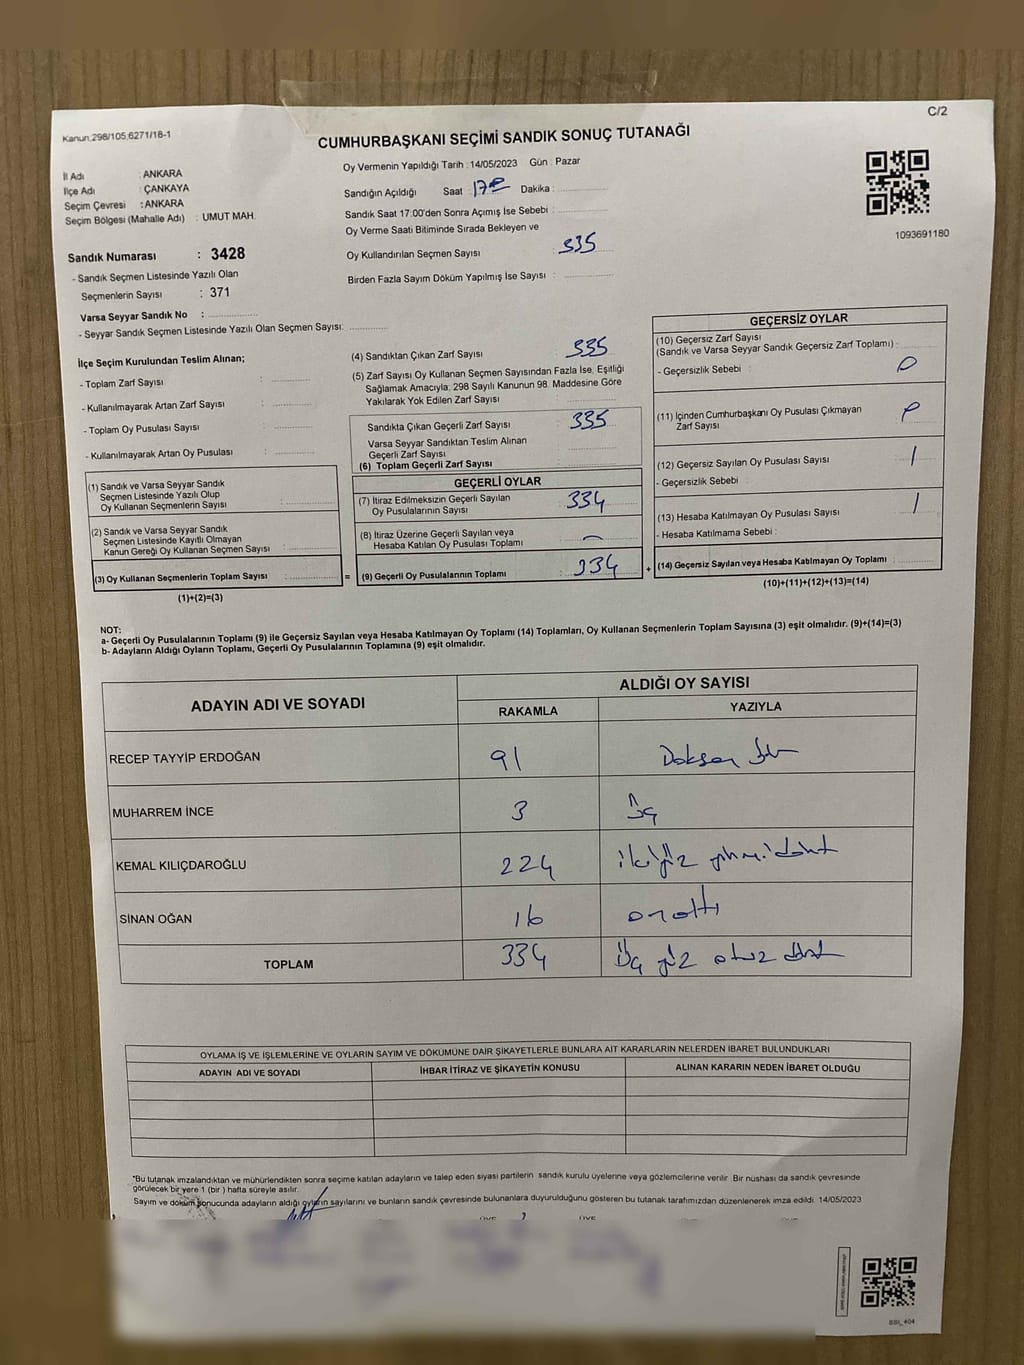 C/2
Kanun:298/105,6271/18-1
CUMHURBAŞKANI SEÇİMİ SANDIK SONUÇ TUTANAĞI
İl Adı : ANKARA
İlçe Adı : ÇANKAYA
Seçim Çevresi : ANKARA
Seçim Bölgesi (Mahalle Adı) : UMUT MAH.
Oy Vermenin Yapıldığı Tarih : 14/05/2023 Gün : Pazar
Sandığın Açıldığı Saat 17 Dakika :
Sandık Saat 17:00'den Sonra Açımış İse Sebebi :
Oy Verme Saati Bitiminde Sırada Bekleyen ve
Oy Kullandırılan Seçmen Sayısı : 335
Birden Fazla Sayım Döküm Yapılmış İse Sayısı :
1093691180
Sandık Numarası : 3428
- Sandık Seçmen Listesinde Yazılı Olan
Seçmenlerin Sayısı : 371
Varsa Seyyar Sandık No :
- Seyyar Sandık Seçmen Listesinde Yazılı Olan Seçmen Sayısı:
İlçe Seçim Kurulundan Teslim Alınan;
- Toplam Zarf Sayısı :
- Kullanılmayarak Artan Zarf Sayısı :
- Toplam Oy Pusulası Sayısı :
- Kullanılmayarak Artan Oy Pusulası :
(1) Sandık ve Varsa Seyyar Sandık
Seçmen Listesinde Yazılı Olup
Oy Kullanan Seçmenlerin Sayısı :
(2) Sandık ve Varsa Seyyar Sandık
Seçmen Listesinde Kayıtlı Olmayan
Kanun Gereği Oy Kullanan Seçmen Sayısı :
(3) Oy Kullanan Seçmenlerin Toplam Sayısı : =
(1)+(2)=(3)
(4) Sandıktan Çıkan Zarf Sayısı : 335
(5) Zarf Sayısı Oy Kullanan Seçmen Sayısından Fazla İse, Eşitliği
Sağlamak Amacıyla; 298 Sayılı Kanunun 98. Maddesine Göre
Yakılarak Yok Edilen Zarf Sayısı :
Sandıkta Çıkan Geçerli Zarf Sayısı : 335
Varsa Seyyar Sandıktan Teslim Alınan
Geçerli Zarf Sayısı :
(6) Toplam Geçerli Zarf Sayısı :
GEÇERLİ OYLAR
(7) İtiraz Edilmeksizin Geçerli Sayılan
Oy Pusulalarının Sayısı : 334
(8) İtiraz Üzerine Geçerli Sayılan veya
Hesaba Katılan Oy Pusulası Toplamı :
(9) Geçerli Oy Pusulalarının Toplamı : 334 +
GEÇERSİZ OYLAR
(10) Geçersiz Zarf Sayısı
(Sandık ve Varsa Seyyar Sandık Geçersiz Zarf Toplamı) :
- Geçersizlik Sebebi : 0
(11) İçinden Cumhurbaşkanı Oy Pusulası Çıkmayan
Zarf Sayısı :
(12) Geçersiz Sayılan Oy Pusulası Sayısı : 1
- Geçersizlik Sebebi :
(13) Hesaba Katılmayan Oy Pusulası Sayısı : 1
- Hesaba Katılmama Sebebi :
(14) Geçersiz Sayılan veya Hesaba Katılmayan Oy Toplamı :
(10)+(11)+(12)+(13)=(14)
NOT:
a- Geçerli Oy Pusulalarının Toplamı (9) ile Geçersiz Sayılan veya Hesaba Katılmayan Oy Toplamı (14) Toplamları, Oy Kullanan Seçmenlerin Toplam Sayısına (3) eşit olmalıdır. (9)+(14)=(3)
b- Adayların Aldığı Oyların Toplamı, Geçerli Oy Pusulalarının Toplamına (9) eşit olmalıdır.
ADAYIN ADI VE SOYADI
ALDIĞI OY SAYISI
RAKAMLA YAZIYLA
RECEP TAYYİP ERDOĞAN 91 Doksan bir
MUHARREM İNCE 3 Üç
KEMAL KILIÇDAROĞLU 224 ikiyüz yirmi dört
SİNAN OĞAN 16 on altı
TOPLAM 334 Üç yüz otuz dört
OYLAMA İŞ VE İŞLEMLERİNE VE OYLARIN SAYIM VE DÖKÜMÜNE DAİR ŞİKAYETLERLE BUNLARA AİT KARARLARIN NELERDEN İBARET BULUNDUKLARI
ADAYIN ADI VE SOYADI İHBAR İTİRAZ VE ŞİKAYETİN KONUSU ALINAN KARARIN NEDEN İBARET OLDUĞU
*Bu tutanak imzalandıktan ve mühürlendikten sonra seçime katılan adayların ve talep eden siyasi partilerin sandık kurulu üyelerine veya gözlemcilerine verilir. Bir nüshası da sandık çevresinde
görülecek bir yere 1 (bir ) hafta süreyle asılır.
Sayım ve döküm sonucunda adayların aldığı oyların sayılarını ve bunların sandık çevresinde bulunanlara duyurulduğunu gösteren bu tutanak tarafımızdan düzenlenerek imza edildi. 14/05/2023
ÜYE ÜYE
BBI_404